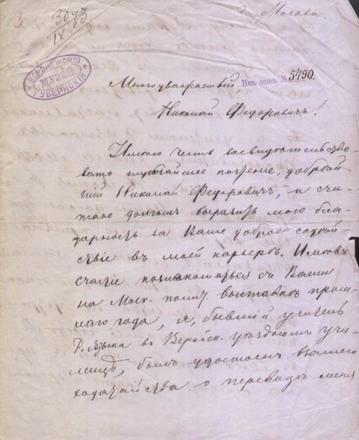 3
г. Москва
3073
IX
ВОРОНЕЖСКІЙ
МУЗЕЙ
ГУБЕРНСКІЙ
Инв. опис. № 5490.
Многоуважаемый
Николай Федоровичъ!
Имѣю честь засвидѣтельство-
вать глубочайшее почтеніе, добрѣй-
шій Николай Федоровичъ, и счи-
таю долгомъ выразить мою бла-
дарность за Ваше доброе содѣй-
ствіе въ моей карьерѣ. Имѣвъ
счастіе познакомиться съ Вами
на Моск. полит. выставкѣ прош-
лаго года, я, бывшій учитель
Р. языка въ Верейск. уѣздномъ учи-
лищѣ, былъ удостоенъ Вашего
ходатайства о переводѣ меня